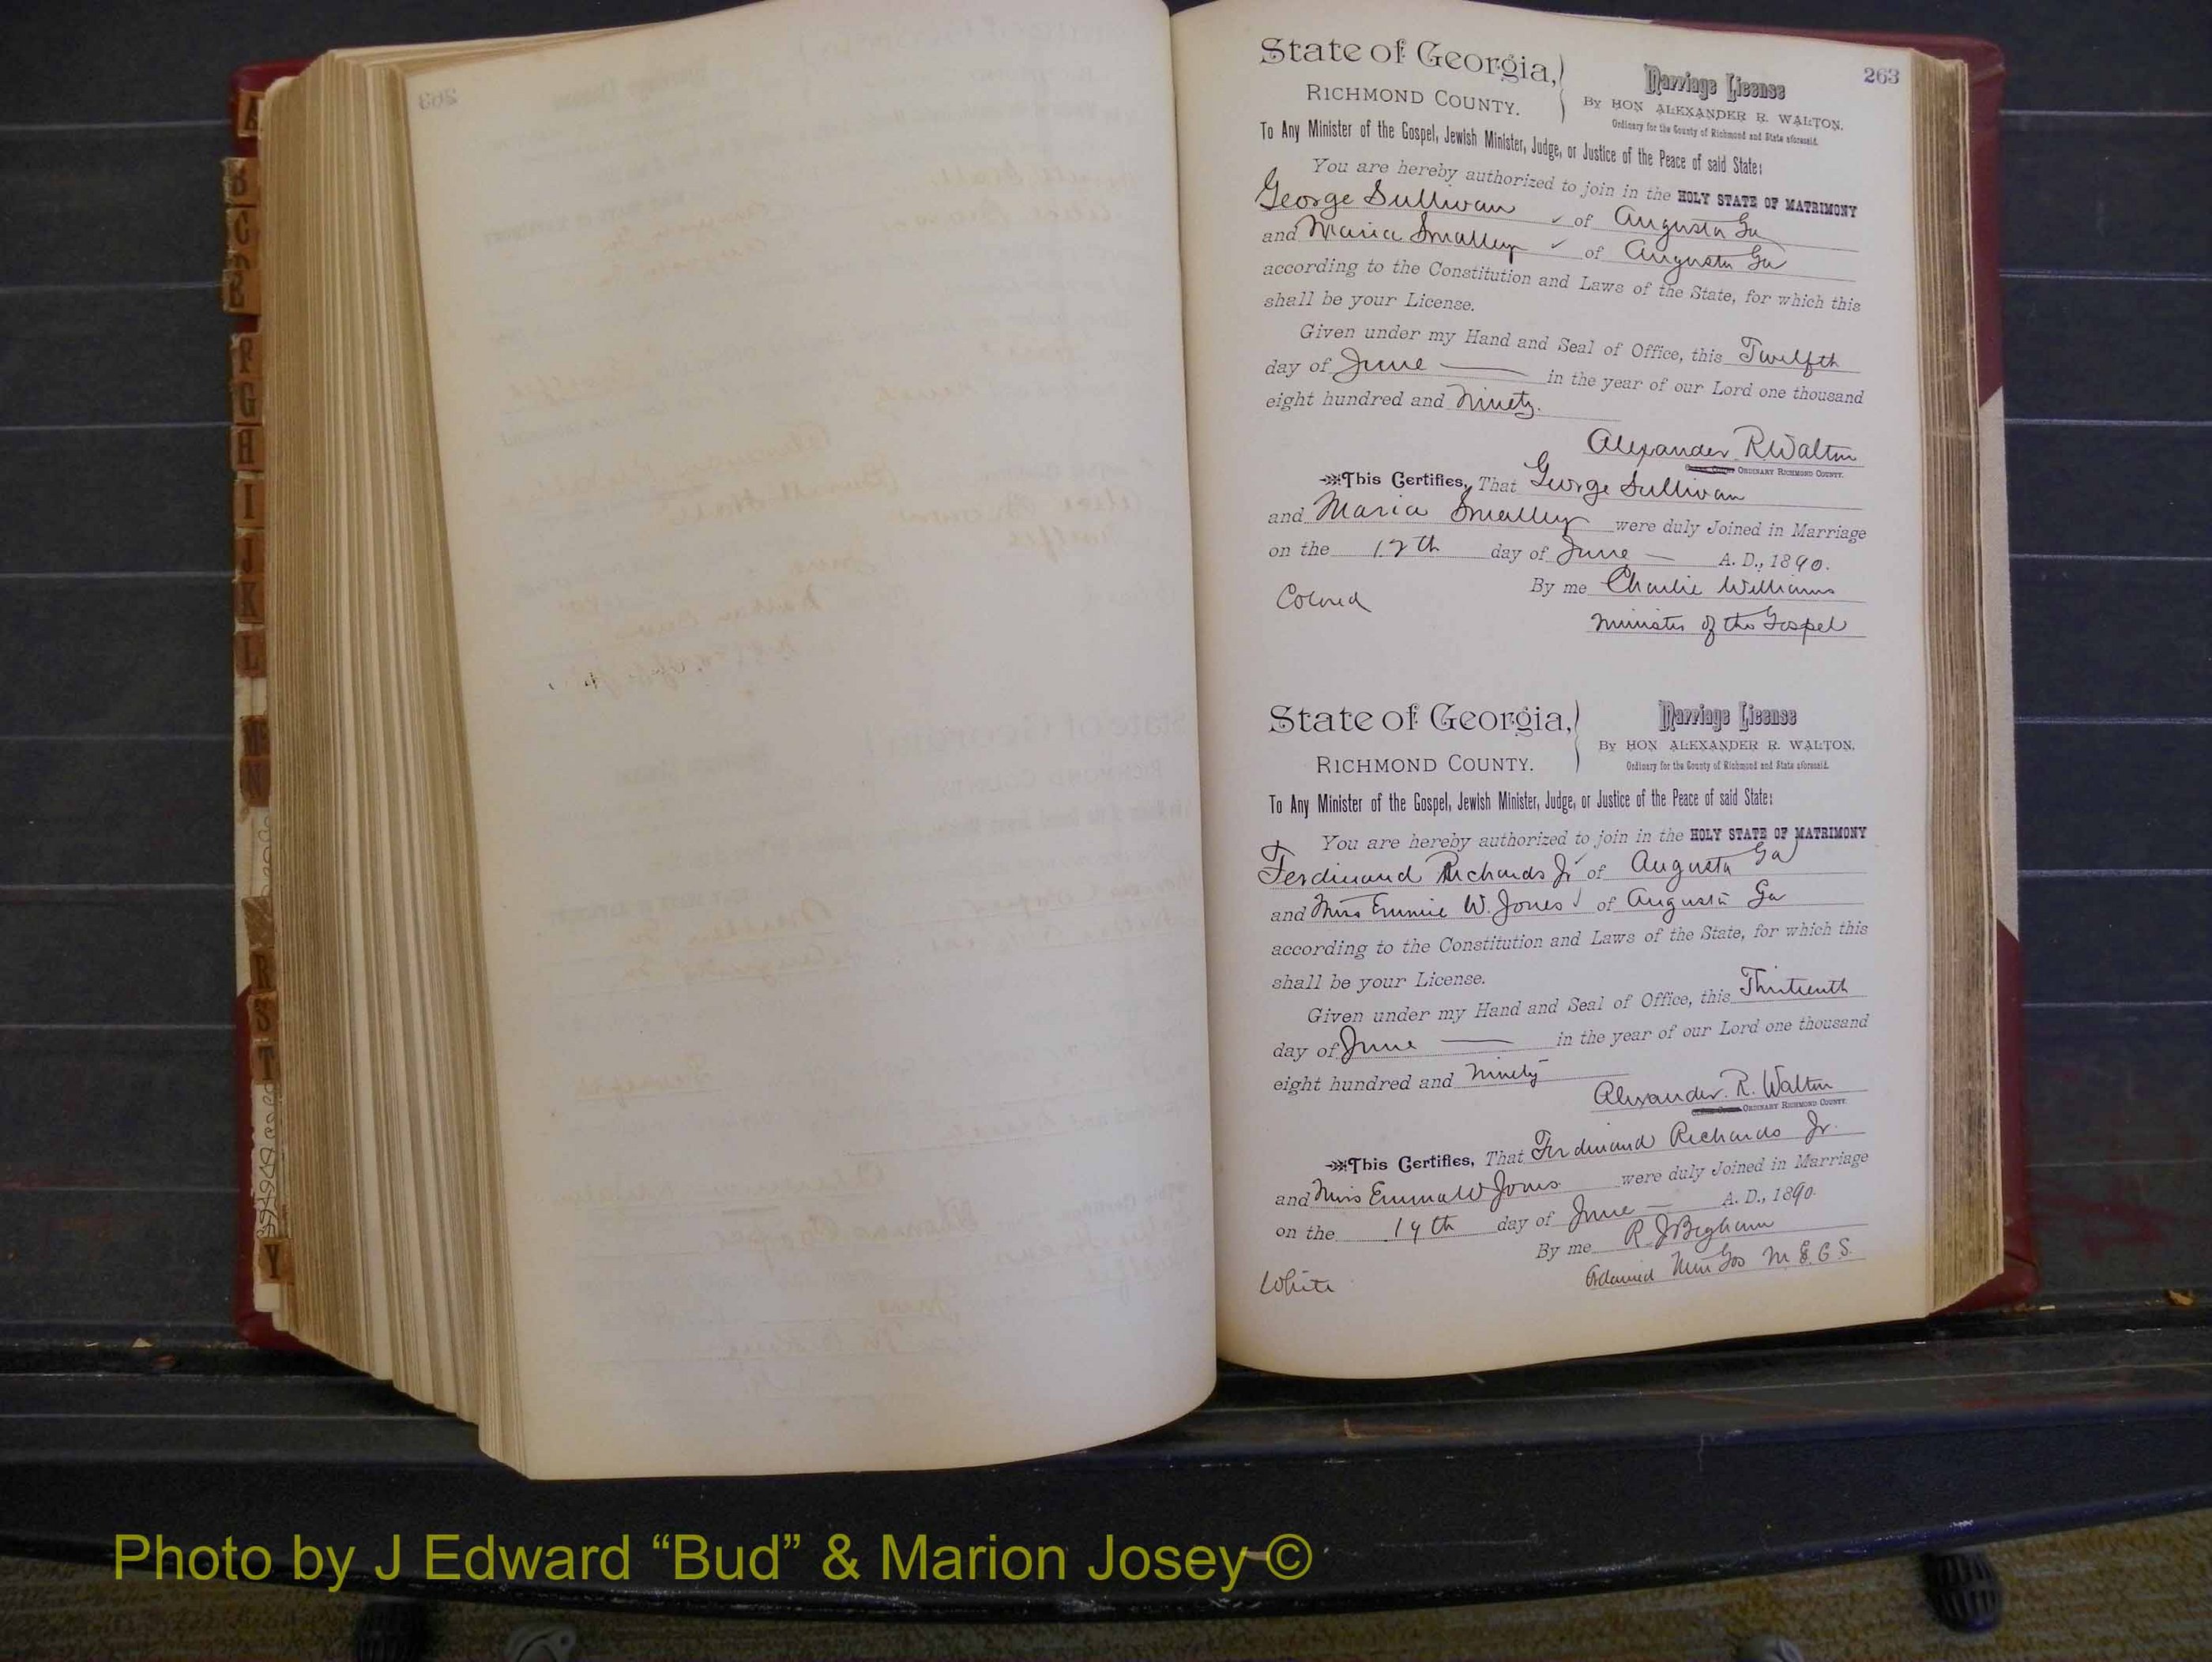 263
State of Georgia,
RICHMOND COUNTY.
Marriage License
By HON ALEXANDER R. WALTON,
Ordinary for the County of Richmond and State aforesaid.
To Any Minister of the Gospel, Jewish Minister, Judge, or Justice of the Peace of said State:
You are hereby authorized to join in the HOLY STATE OF MATRIMONY
George Sullivan of Augusta Ga
and Maria Smalley of Augusta Ga
according to the Constitution and Laws of the State, for which this
shall be your License.
Given under my Hand and Seal of Office, this Twelfth
day of June in the year of our Lord one thousand
eight hundred and Ninety.
Alexander R Walton
ORDINARY RICHMOND COUNTY.
This Certifies, That George Sullivan
and Maria Smalley were duly Joined in Marriage
on the 12th day of June A. D., 1890.
By me Charlie Williams
Colored
Minister of the Gospel
State of Georgia,
RICHMOND COUNTY.
Marriage License
By HON ALEXANDER R. WALTON,
Ordinary for the County of Richmond and State aforesaid.
To Any Minister of the Gospel, Jewish Minister, Judge, or Justice of the Peace of said State:
You are hereby authorized to join in the HOLY STATE OF MATRIMONY
Ferdinand Richards Jr of Augusta Ga
and Miss Emmie W. Jones of Augusta Ga
according to the Constitution and Laws of the State, for which this
shall be your License.
Given under my Hand and Seal of Office, this Thirteenth
day of June in the year of our Lord one thousand
eight hundred and Ninety
Alexander R. Walton
ORDINARY RICHMOND COUNTY.
This Certifies, That Ferdinand Richards Jr.
and Miss Emma W Jones were duly Joined in Marriage
on the 19th day of June A. D., 1890.
By me R J Bigham
Ordained Min Gos M. E. C. S.
White
A
B
C
D
E
F
G
H
I
J
K
L
Mc
N
R
S
T
Y
Photo by J Edward “Bud” & Marion Josey ©